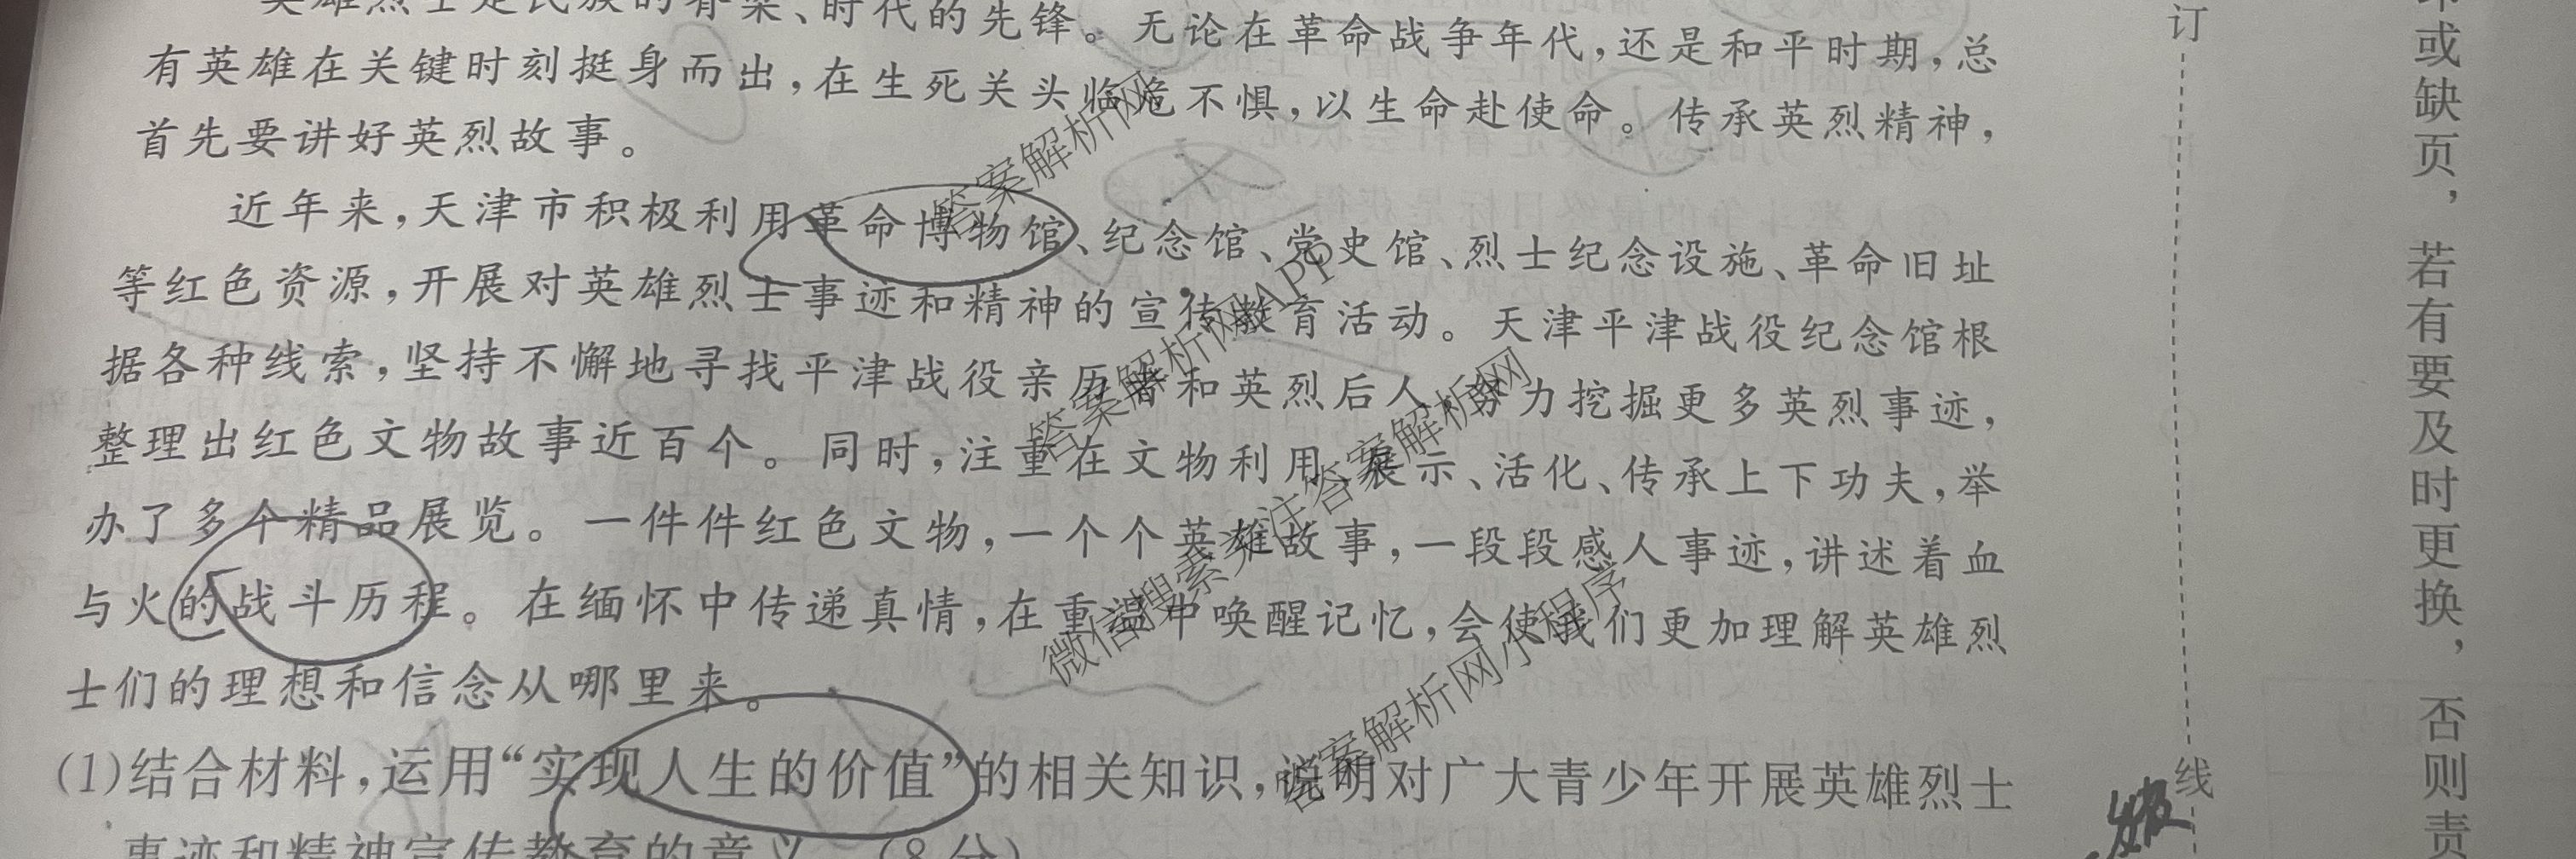 英雄烈士是民族的脊梁、时代的先锋。无论在革命战争年代,还是和平时期,总
有英雄在关键时刻挺身而出,在生死关头临危不惧,以生命赴使命。传承英烈精神,
首先要讲好英烈故事。
近年来,天津市积极利用革命博物馆、纪念馆、党史馆、烈士纪念设施、革命旧址
等红色资源,开展对英雄烈士事迹和精神的宣传教育活动。天津平津战役纪念馆根
据各种线索,坚持不懈地寻找平津战役亲历者和英烈后人,努力挖掘更多英烈事迹,
整理出红色文物故事近百个。同时,注重在文物利用、展示、活化、传承上下功夫,举
办了多个精品展览。一件件红色文物,一个个英雄故事,一段段感人事迹,讲述着血
与火的战斗历程。在缅怀中传递真情,在重温中唤醒记忆,会使我们更加理解英雄烈
士们的理想和信念从哪里来。
(1)结合材料,运用“实现人生的价值”的相关知识,说明对广大青少年开展英雄烈士
事迹和精神宣传教育的意义。(8分)
订
线
或缺页,若有要及时更换,否则责
答案解析网
答案解析网APP
微信搜索关注答案解析网
答案解析网小程序